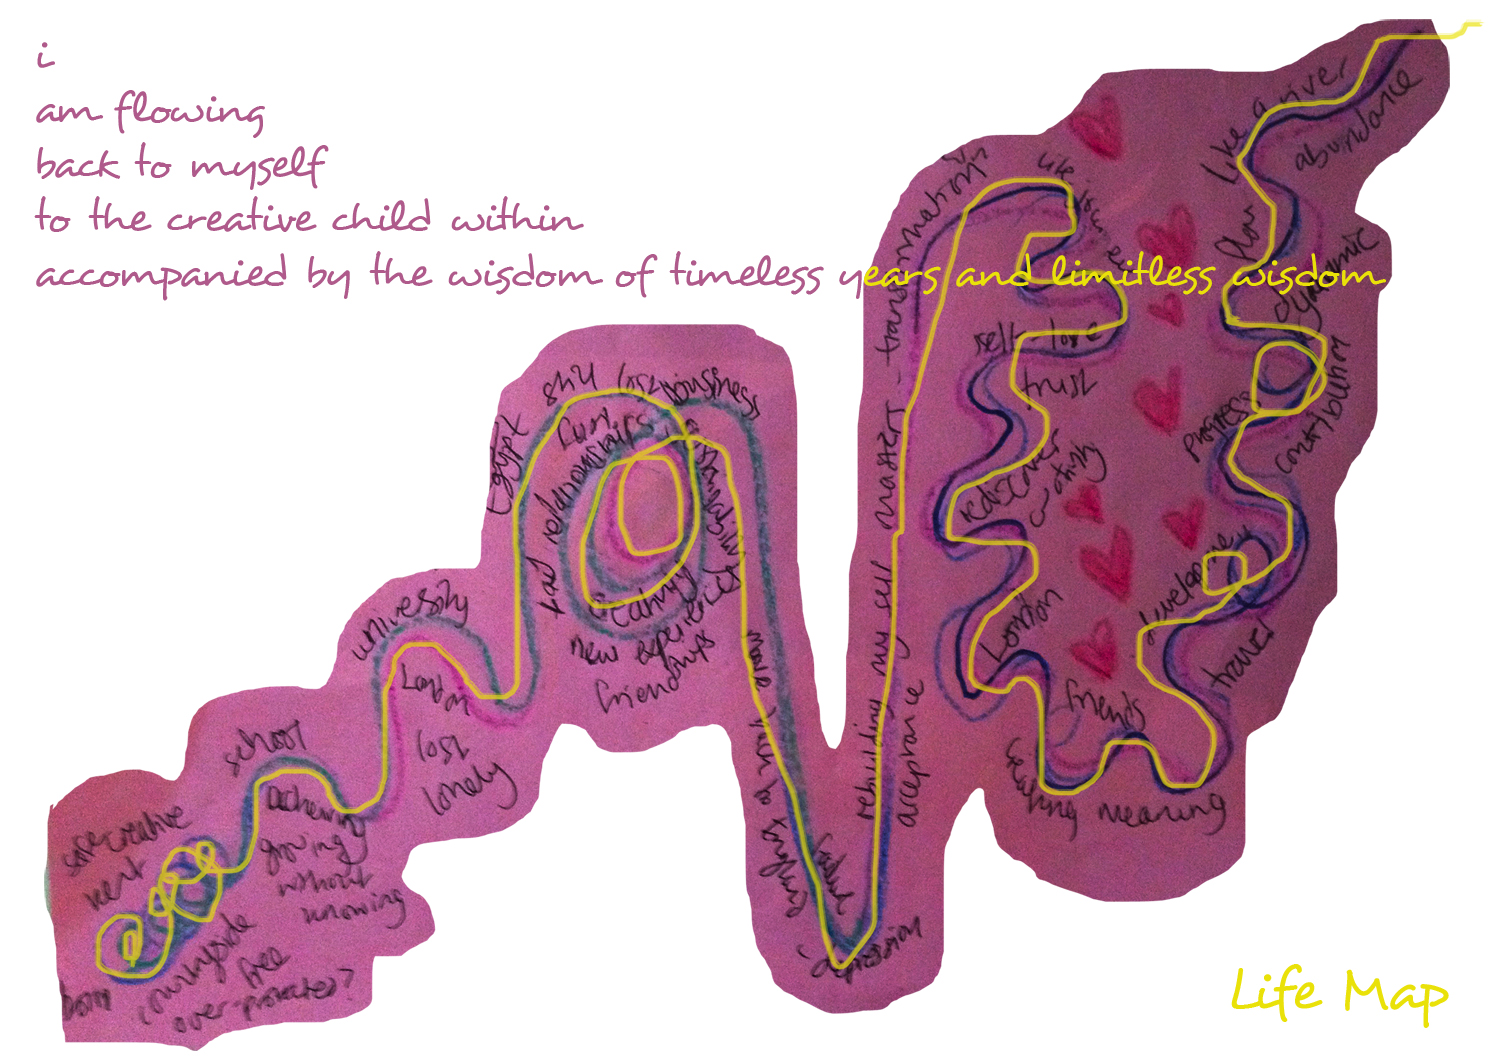 i
am flowing
back to myself
to the creative child within
accompanied by the wisdom of timeless years and limitless wisdom
born
safe creative
kent
countryside
free
over-protected?
school
achieving
growing
without
knowing
university
London
lost
lonely
Egypt
still lost
business
fun
bad relationships
sustainability
new experiences
friendships
depression
rebuilding my self
acceptance
masters - transformation
self love
trust
rediscover
creativity
London
friends
creating meaning
travel
development
progress
contribution
dynamic
flow
like a river
abundance
Life Map